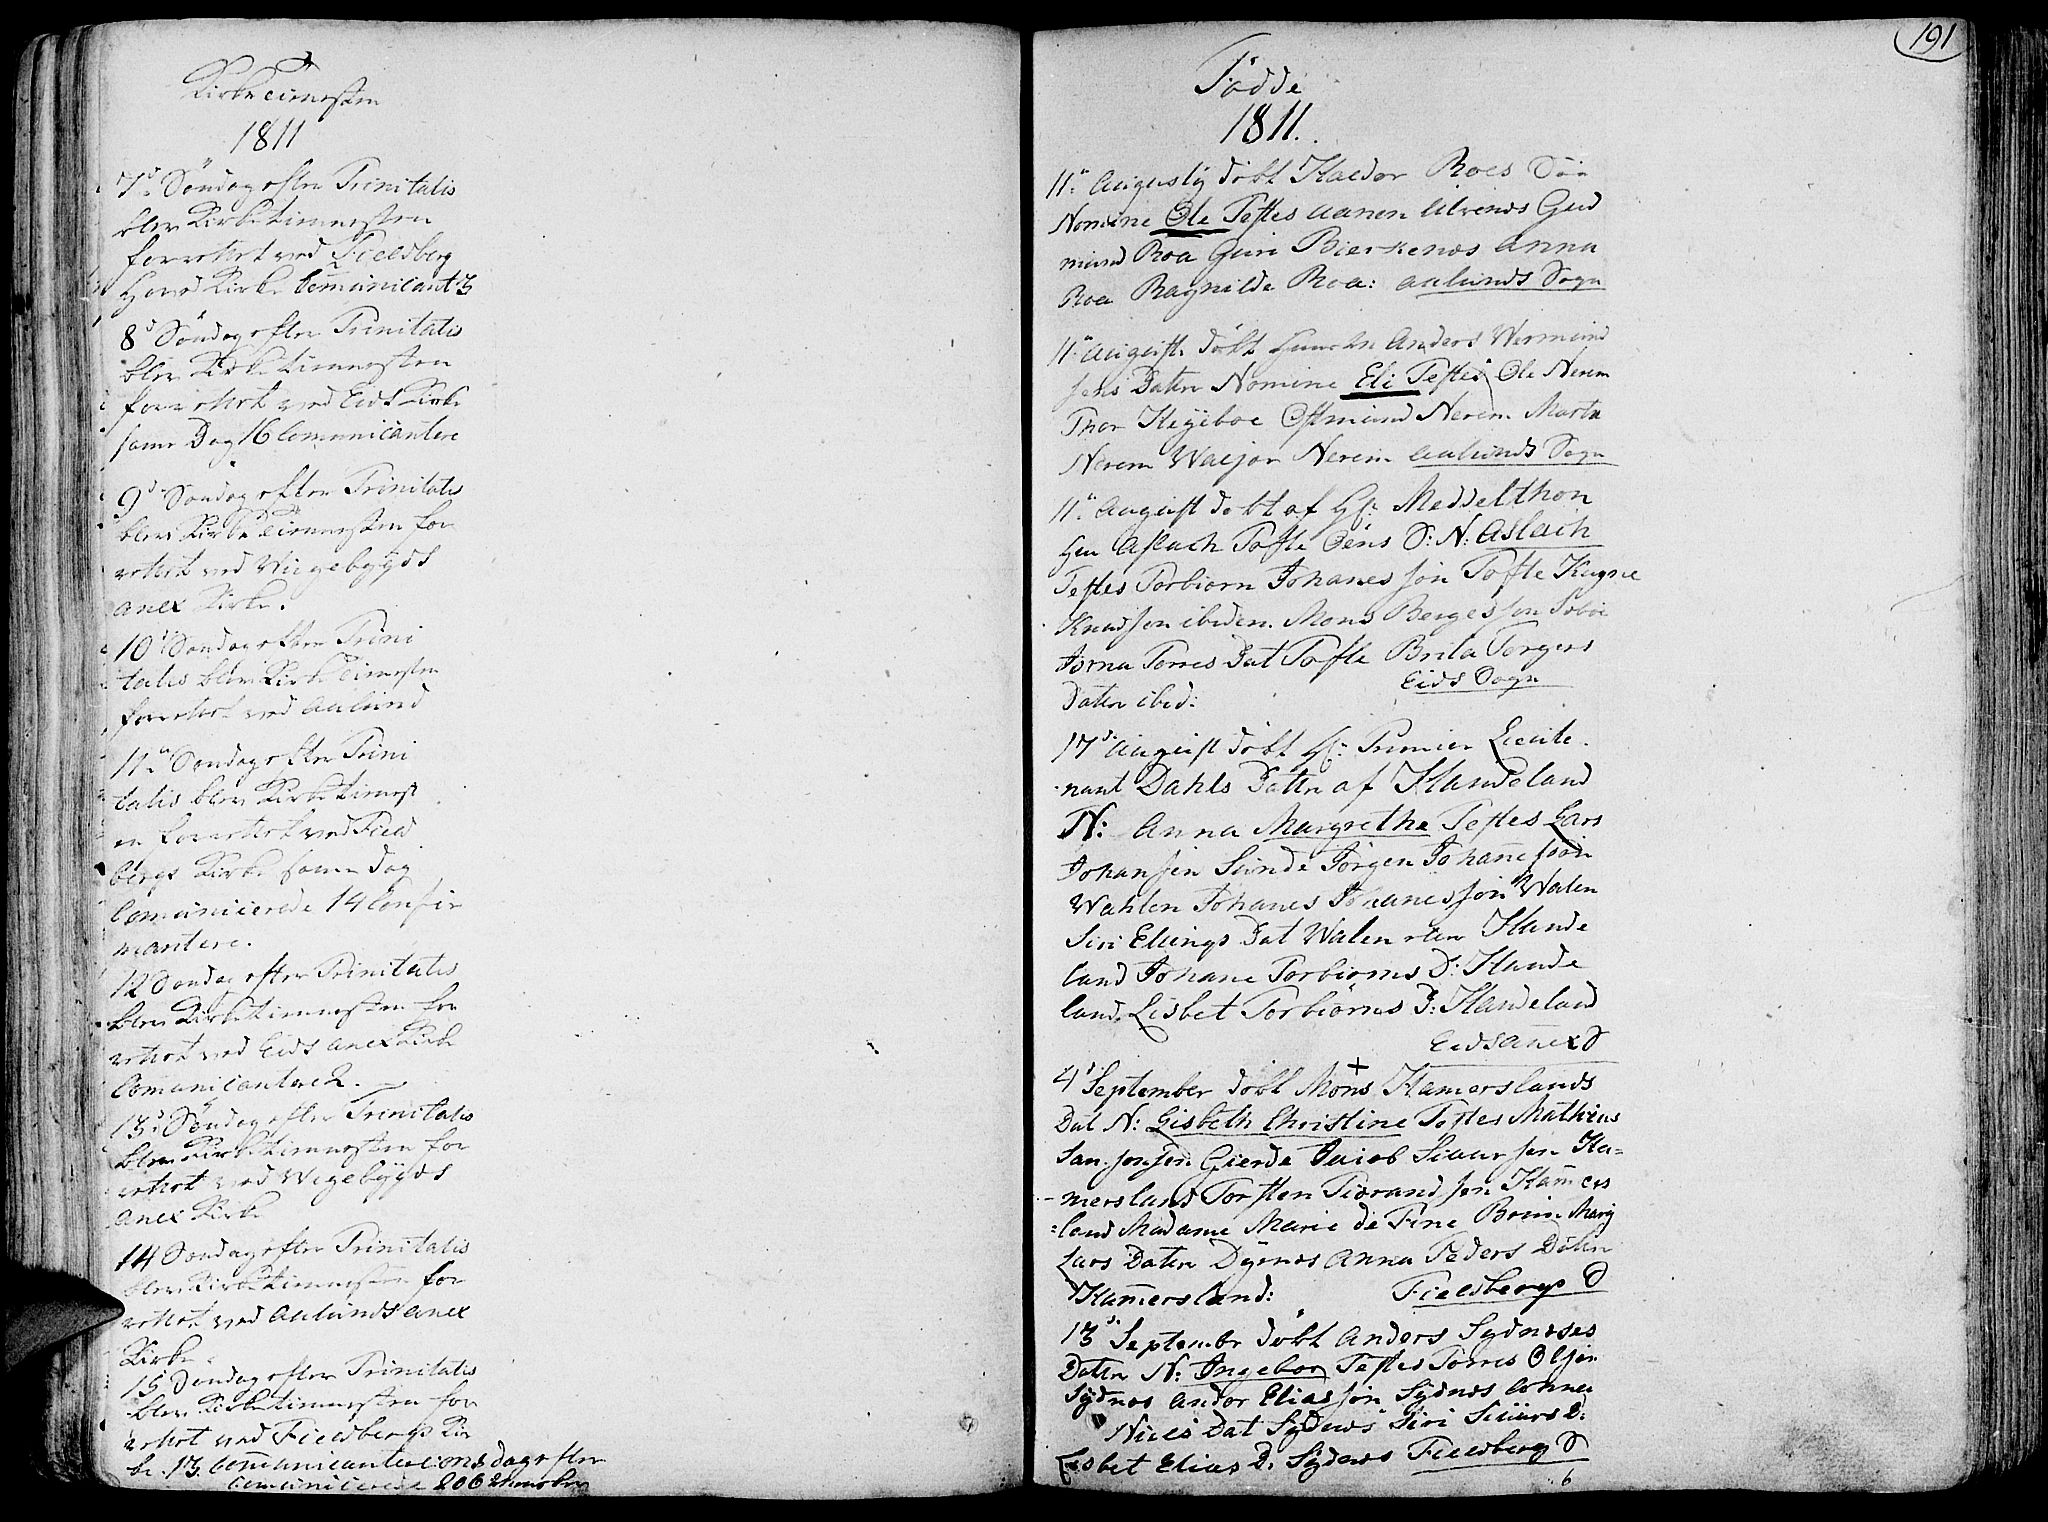 Kirketienesten
1811
7de Söndag efter Trinitatis
blev Kirketienesten
forrettet ved Fieldberg
Hoved Kirke Comunicant 3
8d Söndag efter Trinitatis
blev Kirketienesten
forrettet ved Eids Kirke
same Dag 16 Comunicantere
9d Söndag efter Trinitatis
blev Kirketienesten for
rettet ved Wigebÿgds
anex Kirke.
10d Söndag efter Trini
tatis blev Kirketienesten
forrettet ved Aalund
11te Söndag efter Trini
tatis blev Kirketienest
en forrettet ved Field
bergs Kirke same dag
Comunicerede 14 Confir
mantere.
12 Söndag efter Trinitatis
blev Kirketienesten for
rettet ved Eids anex Kirke
Comunicantere 2.
13d Söndag efter Trinitatis
blev Kirketienesten for
rettet ved Wigebÿgds
anex Kirke
14 Söndag efter Trinitatis
blev Kirketienesten for
rettet ved Aalunds anex
Kirke.
15 Söndag efter Trinitatis
blev Kirketienesten for
rettet ved Fieldbergs Kir
ke. 13 Comunicantere dag efter
Comunicerede 206
191
Födde
1811.
11te Augustÿ döbt Haldor Roes Sön
Nomine Ole Testes Aanen Ulvenes Gud
mund Roa Guri Bierkenes Anna
Roa Ragnilde Roa: Aalunds Sogn
11te August döbt Anders Wermund
sens Datter Nomine Eli Testes Ole Nerem
Thor Høÿeboe Østmund Nerem Marta
Nerem Nerem Aalunds Sogn
11te August döbt af Hr: Meddelthon
Aslach Tofte S: N: Aslach
Testes Torbiorn Johanessøn Tofte
Knudsøn ibidem. Mons
Torres Dat Tofte Brita Torgers
Eids Sogn
Datter ibid:
17d August döbt Hr: Premier Lieute
nant Dahls Datter af Handeland
N: Anna Margrethe Testes Lars
Johansen Sunde Jörgen Johanesön
Wahlen Johanes Johanessön Walen
Siri Ellings Dat Walen Hande
land Johane Torbiorns D: Hande
land. Lisbet Torbiörns D: Handeland
Eids anex S
4d September döbt Mons Hamerslands
Dat N: Lisbeth Christine Testes Mathias
Gierde Jacob Siversen Ha=
mersland Torsten Hamers
=land Madame Marie de Fine
Lars Datter Anna Peders Dötter
Hamersland: Fieldbergs S
13d September döbt Anders Sydneses
Datter N: Ingebor Testes Torres Olsøn
Sÿdnes Andor Eliassøn Sÿdnes Anna
Niels Dat Sydnes Siri Siuurs D:
Lisbet Elias D. Sydnes Fieldberg S
6